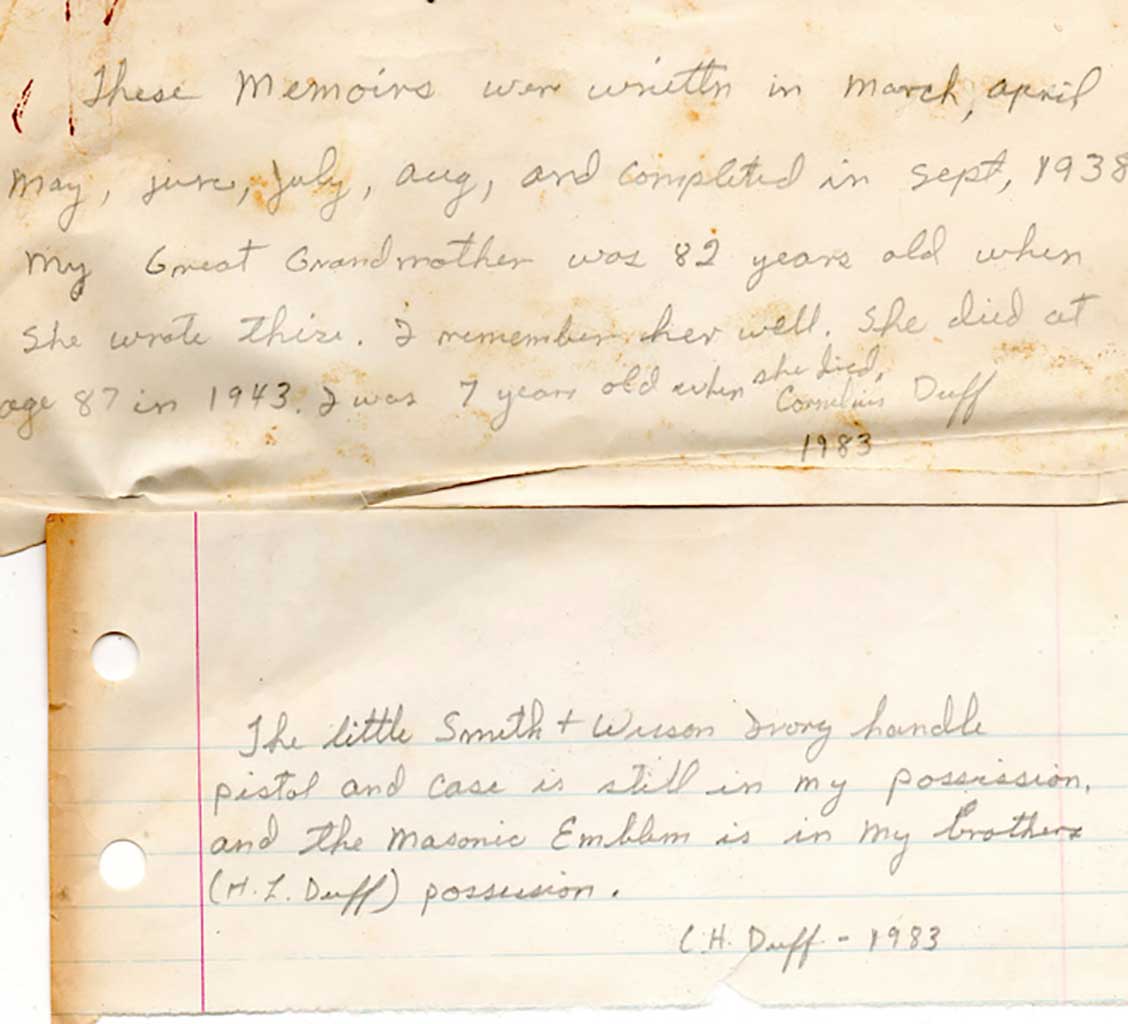 These Memoirs were written in March, april
May, june, July, aug, and completed in Sept, 1938
My Great Grandmother was 82 years old when
She wrote this. I remember her well. She died at
age 87 in 1943. I was 7 years old when she died.
Cornelius Duff
1983
The little Smith + Wesson Ivory handle
pistol and case is still in my possission,
and the Masonic Emblem is in my brothers
(H. L. Duff) possession.
C.H. Duff - 1983